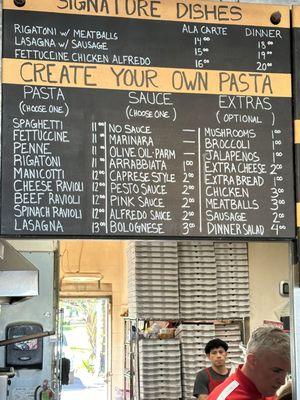 SIGNATURE DISHES
A LA CARTE DINNER
RIGATONI W/ MEATBALLS 14⁰⁰ 18⁰⁰
LASAGNA W/ SAUSAGE 15⁰⁰ 19⁰⁰
FETTUCCINE CHICKEN ALFREDO 16⁰⁰ 20⁰⁰
CREATE YOUR OWN PASTA
PASTA
(CHOOSE ONE)
SPAGHETTI 11⁰⁰
FETTUCCINE 11⁰⁰
PENNE 11⁰⁰
RIGATONI 11⁰⁰
MANICOTTI 12⁰⁰
CHEESE RAVIOLI 12⁰⁰
BEEF RAVIOLI 12⁰⁰
SPINACH RAVIOLI 12⁰⁰
LASAGNA 13⁰⁰
SAUCE
(CHOOSE ONE)
NO SAUCE —
MARINARA —
OLIVE OIL + PARM —
ARRABBIATA 1⁰⁰
CAPRESE STYLE 2⁰⁰
PESTO SAUCE 2⁰⁰
PINK SAUCE 2⁰⁰
ALFREDO SAUCE 2⁰⁰
BOLOGNESE 3⁰⁰
EXTRAS
(OPTIONAL)
MUSHROOMS 1⁰⁰
BROCCOLI 1⁰⁰
JALAPENOS 1⁰⁰
EXTRA CHEESE 2⁰⁰
EXTRA BREAD 1⁰⁰
CHICKEN 3⁰⁰
MEATBALLS 3⁰⁰
SAUSAGE 2⁰⁰
DINNER SALAD 4⁰⁰